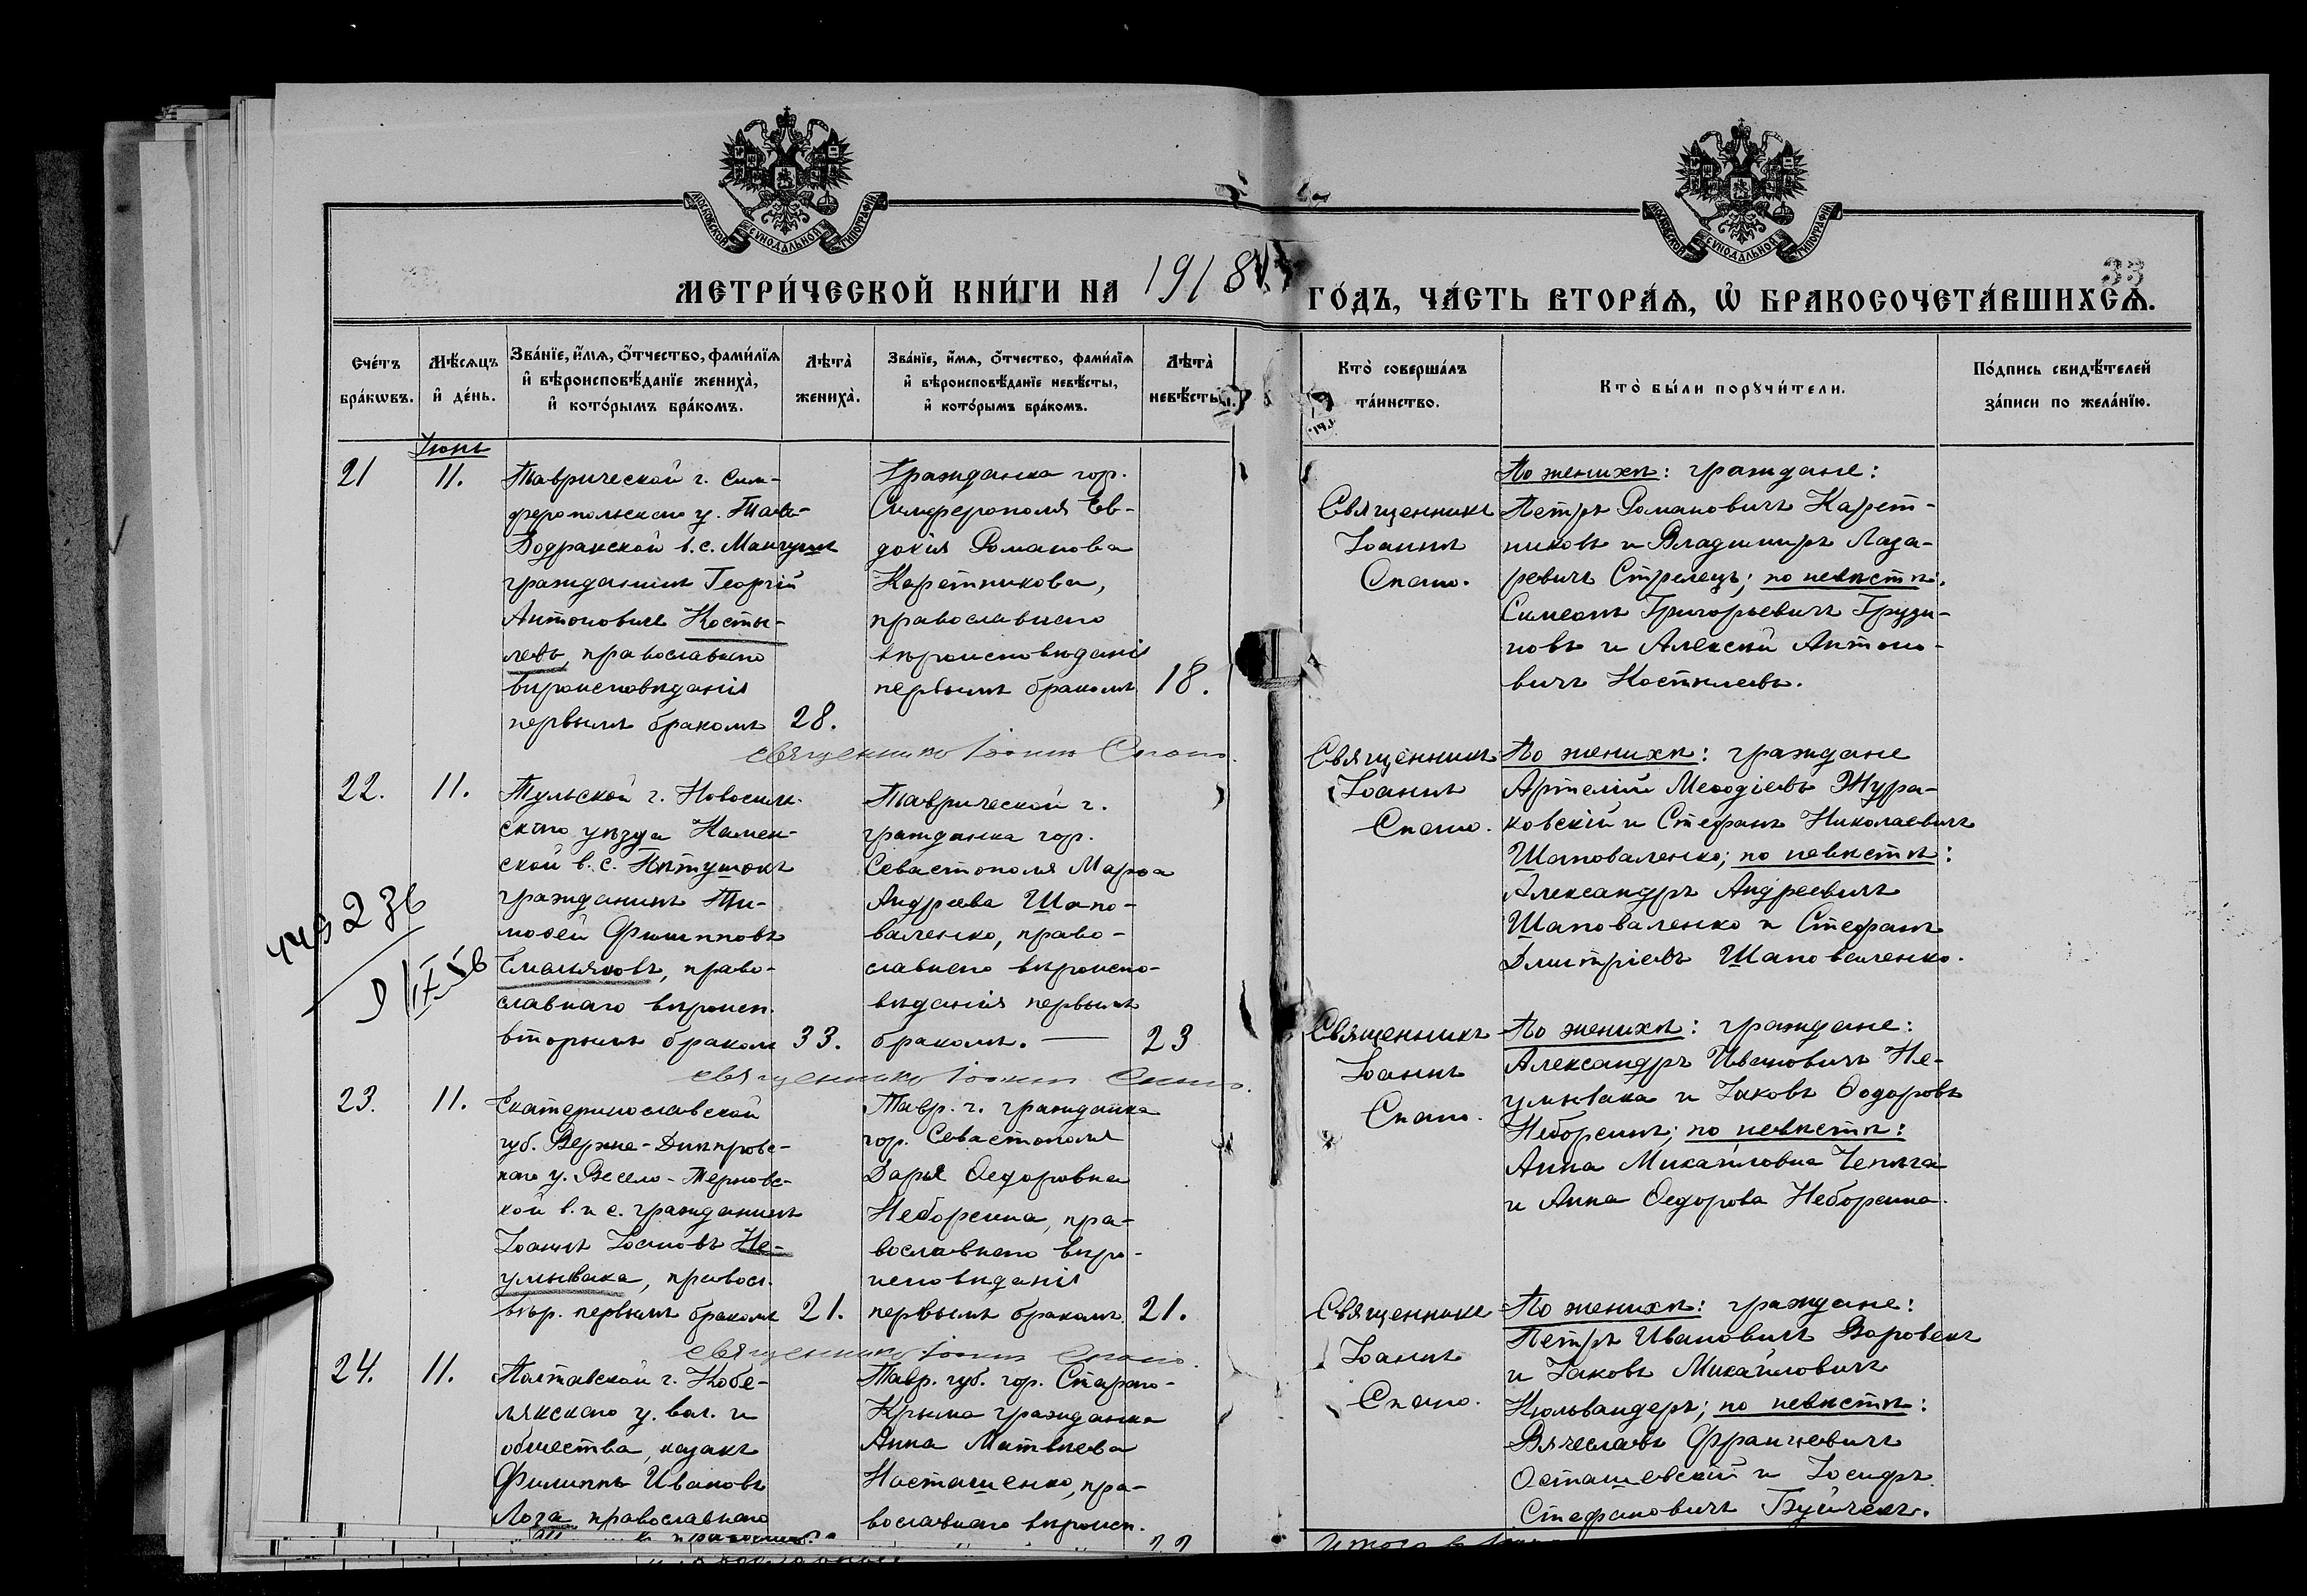 МОСКОВСКОЙ СѴНОДАЛЬНОЙ ТИПОГРАФІИ
МОСКОВСКОЙ СѴНОДАЛЬНОЙ ТИПОГРАФІИ
33
МЕТРИ́ЧЕСКОЙ КНИ́ГИ НА 1918 ГО́ДЪ, ЧА́СТЬ ВТОРА́Я, Ѡ БРАКОСОЧЕТА́ВШИХСЯ.
Сче́тъ бра́кѡвъ.
Мѣ́сяцъ и҆ де́нь.
Зва́нїе, и҆́мя, ѻ҆́тчество, фами́лїя и҆ вѣроисповѣ́данїе жениха̀, и҆ кото́рымъ бра́комъ.
Лѣта̀ жениха̀.
Зва́нїе, и҆́мя, ѻ҆́тчество, фами́лїя и҆ вѣроисповѣ́данїе невѣ́сты, и҆ кото́рымъ бра́комъ.
Лѣта̀ невѣ́сты.
Кто̀ соверша́лъ та́инство.
Кто̀ бы́ли порꙋчи́тели.
По́дпись свидѣ́телей за́писи по жела́нїю.
Іюнь
21
11.
Таврической г. Сим-
феропольскаго у.
Бодракской в. с. Мангуш
гражданинъ Георгій
Антоновичъ Косты-
левъ, православнаго
вѣроисповѣданія
первымъ бракомъ
28.
Гражданка гор.
Симферополя Ев-
докія Романова
Каретникова,
православнаго
вѣроисповѣданія
первымъ бракомъ
18.
Священникъ
Іоаннъ
По женихѣ: граждане:
Петръ Романовичъ Карет-
никовъ и Владимиръ Лаза-
ревичъ Стрелецъ; по невѣстѣ:
Симеонъ Григорьевичъ Грузи-
новъ и Алексѣй Антоно-
вичъ Костылевъ.
священникъ Іоаннъ
22.
11.
Тульской г. Новосиль-
скаго уѣзда Камен-
ской в. с. Пѣтушокъ
гражданинъ Ти-
моѳей Филипповъ
Емельяновъ, право-
славнаго вѣроисп.
вторымъ бракомъ
33.
Таврической г.
гражданка гор.
Севастополя Марѳа
Андреева Шапо-
валенко, право-
славнаго вѣроиспо-
вѣданія первымъ
бракомъ. —
23
Священникъ
Іоаннъ
По женихѣ: граждане
Артемій Меѳодіевъ Жура-
ковскій и Стефанъ Николаевичъ
Шаповаленко; по невѣстѣ:
Александръ Андреевичъ
Шаповаленко и Стефанъ
Дмитріевъ Шаповаленко.
236
священникъ Іоаннъ
23.
11.
Екатеринославской
губ. Верхне-Днѣпровс-
каго у. Весело-Терновс-
кой в. и с. гражданинъ
Іоаннъ Іоанновъ Не-
умывака, правосл.
вѣр. первымъ бракомъ
21.
Тавр. г. гражданка
гор. Севастополя
Дарья Ѳедоровна
Неборсина, пра-
вославнаго вѣро-
исповѣданія
первымъ бракомъ
21.
Священникъ
Іоаннъ
По женихѣ: граждане:
Александръ Ивановичъ Не-
умывака и Іаковъ Ѳодоровъ
по невѣстѣ:
Анна Михайловна Чепига
и Анна Ѳедорова Неборсина.
священникъ Іоаннъ
24.
11.
Полтавской г. Кобе-
лякскаго у. вол. и
общества, казакъ
Филиппъ Ивановъ
Лога православнаго
Тавр. губ. гор. Стараго-
Крыма гражданка
Анна Матвѣева
Носташенко, пра-
вославнаго вѣроисп.
22
Священникъ
Іоаннъ
По женихѣ: граждане:
Петръ Ивановичъ
и Іаковъ Михайловичъ
Кюльвандеръ; по невѣстѣ:
Вячеславъ Францевичъ
Осташевскій и Іосифъ
Стефановичъ Буйчекъ.